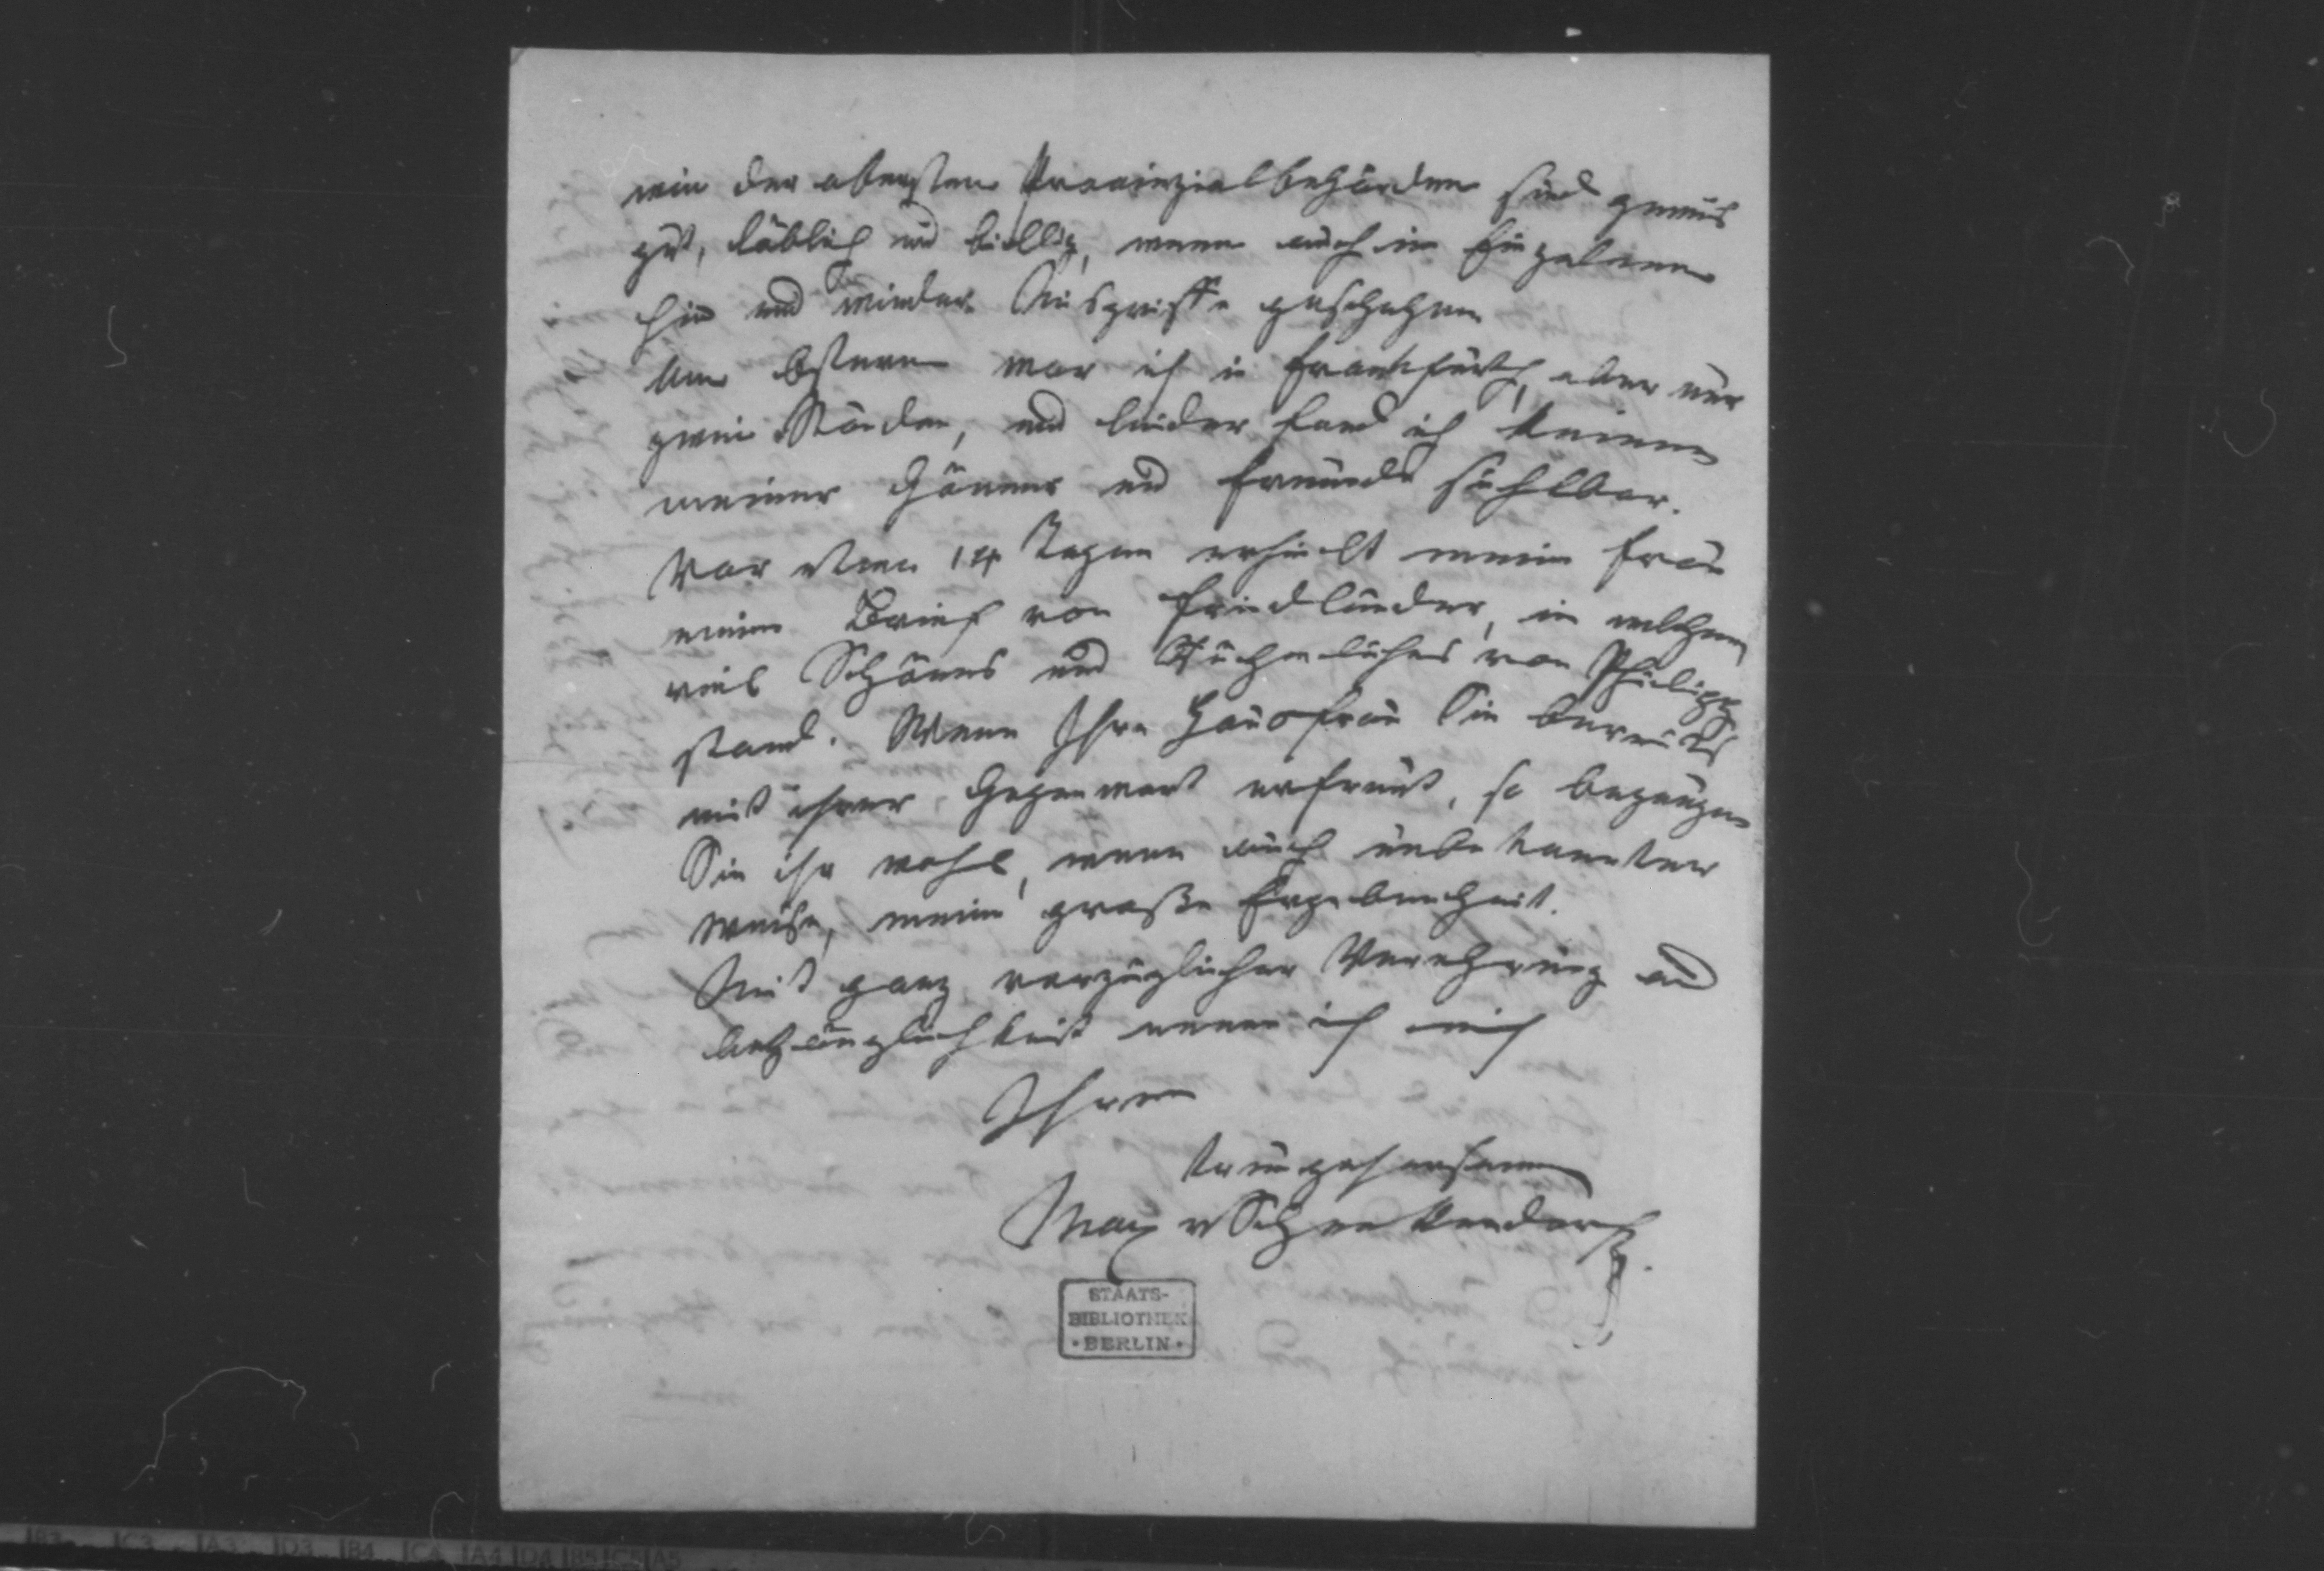 wie der obersten Provinzialbehörden sind gewis
gut, löblich und billig, wenn auch im Einzelnen
hin und wieder Misgriffe geschehen.
Um Ostern war ich in Frankfurth, aber nur
zwei Stunden, und leider fand ich keinen
meiner Gönner und Freunde sichtbar.
Vor etwa 14 Tagen erhielt meine Frau
einen Brief von Friedländer, in welchem
viel Schönes und von Philipp
stand. Wenn Ihre Hausfrau Sie bereits
mit ihrer Gegenwart erfreut, so bezeugen
Sie ihr wohl, wenn auch unbekannter
weise, meine große Ergebenheit.
Mit ganz vorzüglicher Verehrung und
Anhänglichkeit nenne ich mich
Ihren
treugehorsamen
Max v Schenkendorf.
STAATS-
BIBLIOTHEK
• BERLIN •
B3 C3 A3 D3 B4 C4 A4 D4 B5 C5 A5